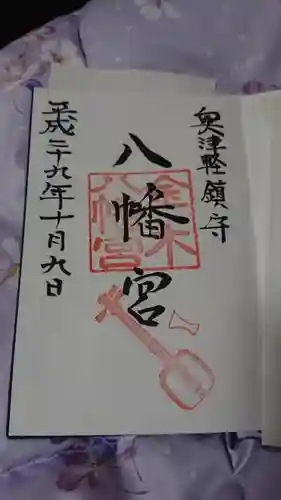 奥津軽鎮守
八幡宮
金木
八幡宮
平成二十九年十月九日